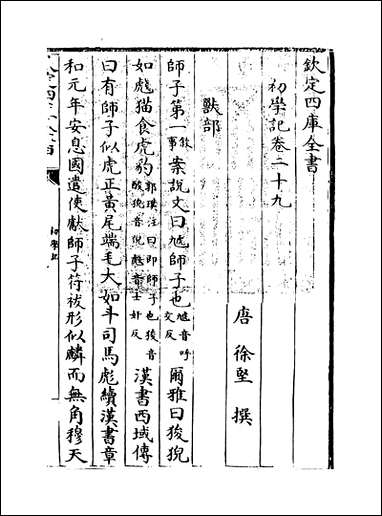 欽定四庫全書
初學記卷二十九
唐 徐堅 撰
獸部
師子第一敘事案說文曰虓師子也虓音呼交反爾雅曰狻猊
如虥猫食虎豹郭璞注曰即師子也狻音酸猊音倪虥音士奸反漢書西域傳
曰有師子似虎正黃尾端毛大如斗司馬彪續漢書章
和元年安息國遣使獻師子符祓形似麟而無角穆天
初學記